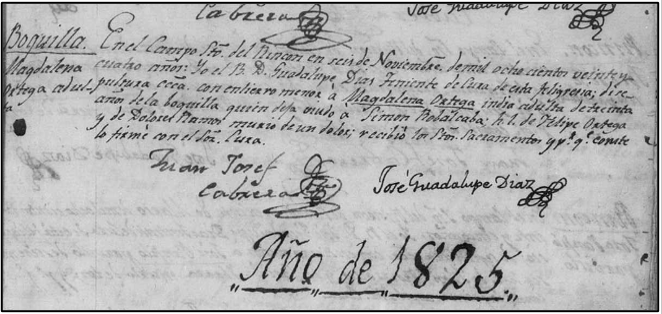 Cabrera
José Guadalupe Diaz
Boquilla. En el Campo Sto. del Rincon en seis de Noviembre, de mil ocho cientos veinte y
Magdalena cuatro años: Yo el B. D. Guadalupe Dias Teniente de Cura de esta feligresia; di se-
Ortega adul- pultura ecca. con entierro menor à Magdalena Ortega india adulta de treinta
ta años de la boquilla quien deja viudo à Simon Rubalcaba; h. l. de Felipe Ortega
y de Dolores Ramos murio de un dolor; recibio los Stos. Sacramentos y pa. qe. conste
lo firmè con el Sor. Cura.
Juan Josef
Cabrera
José Guadalupe Diaz
Año de 1825.